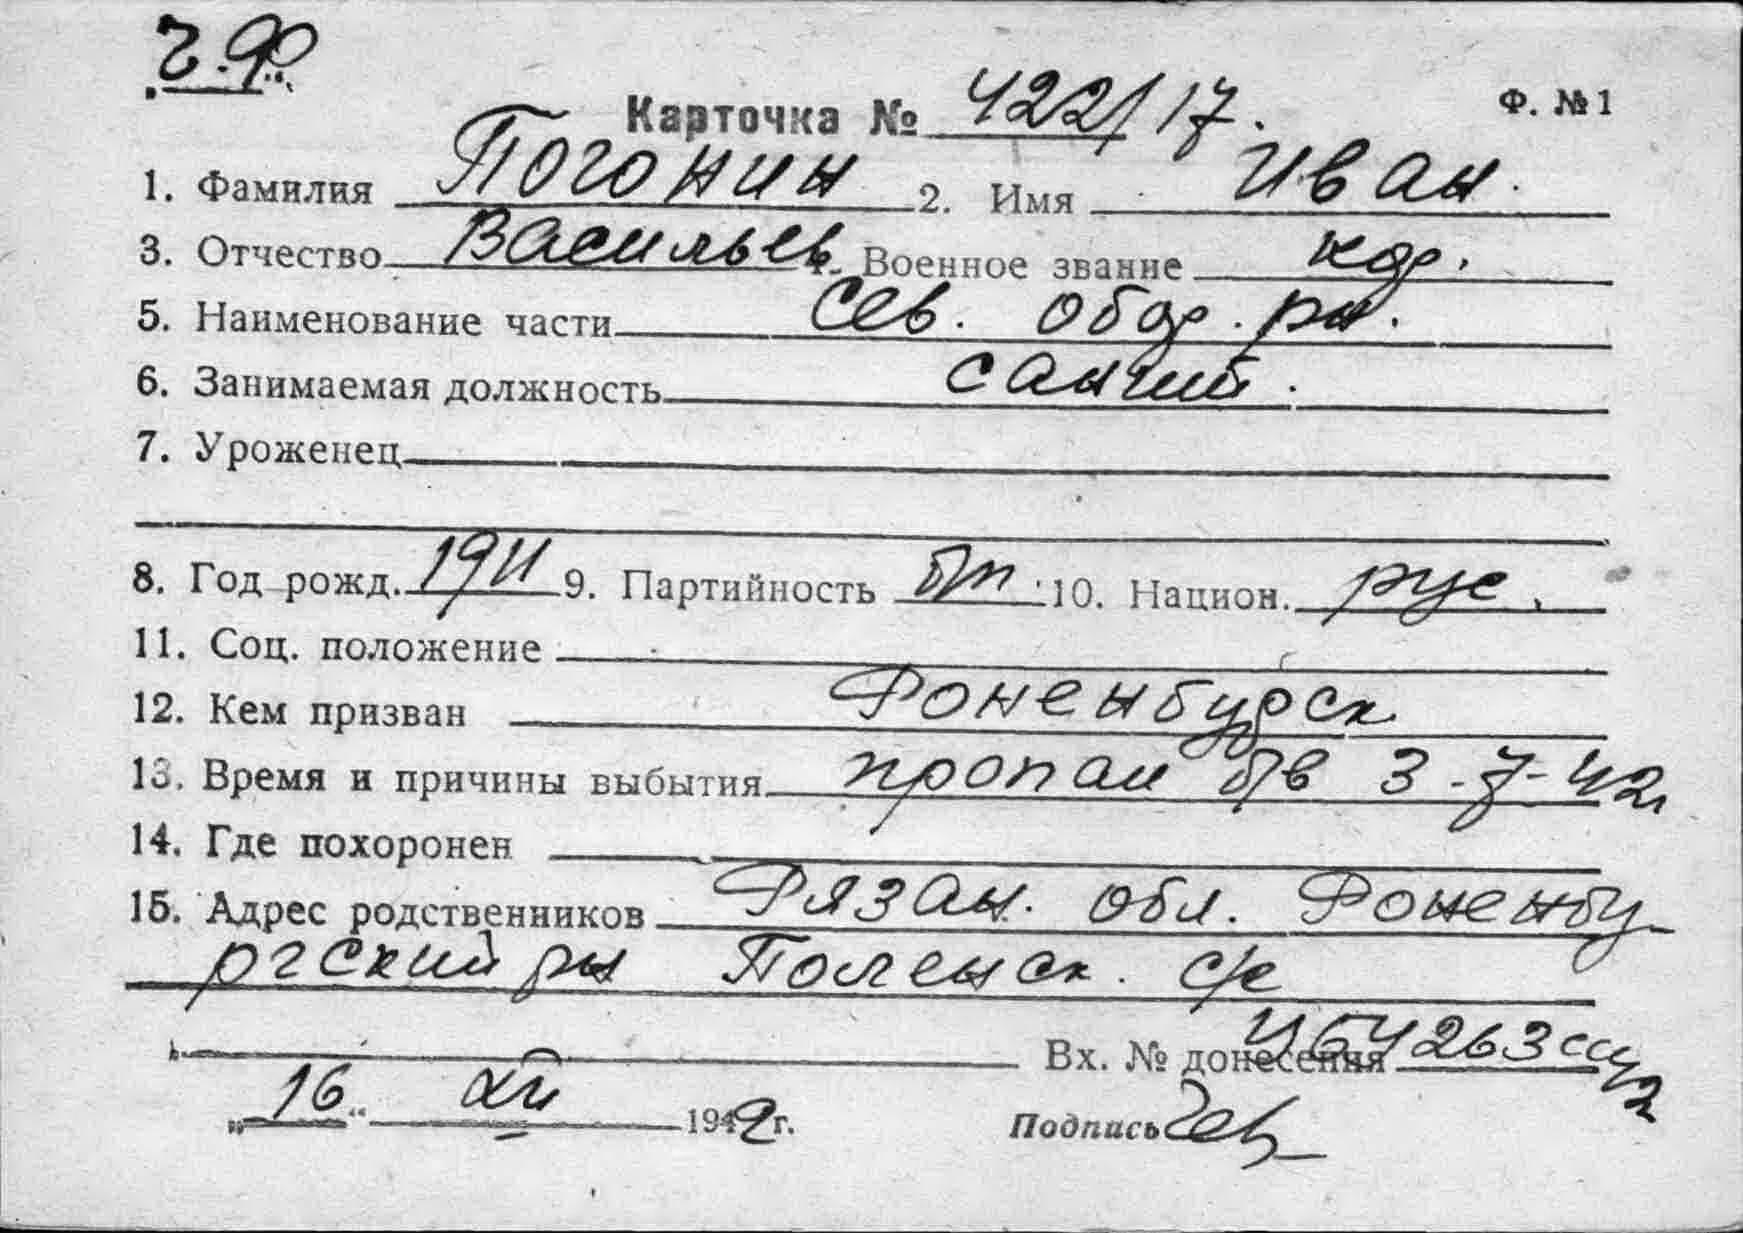 Ч.Ф
Карточка № 422/17. Ф. №1
1. Фамилия Погонин 2. Имя Иван.
3. Отчество Васильев Военное звание кр.
5. Наименование части Сев. обор. рн.
6. Занимаемая должность
7. Уроженец
8. Год рожд. 1911 9. Партийность б/п 10. Национ. рус.
11. Соц. положение
12. Кем призван Роненбурск
13. Время и причины выбытия пропал б/в 3-7-42г
14. Где похоронен
15. Адрес родственников Рязан. обл. Роненбу-
ргский рн Поленск. с/с
Вх. № донесения
„16“ XII 1942г. Подпись